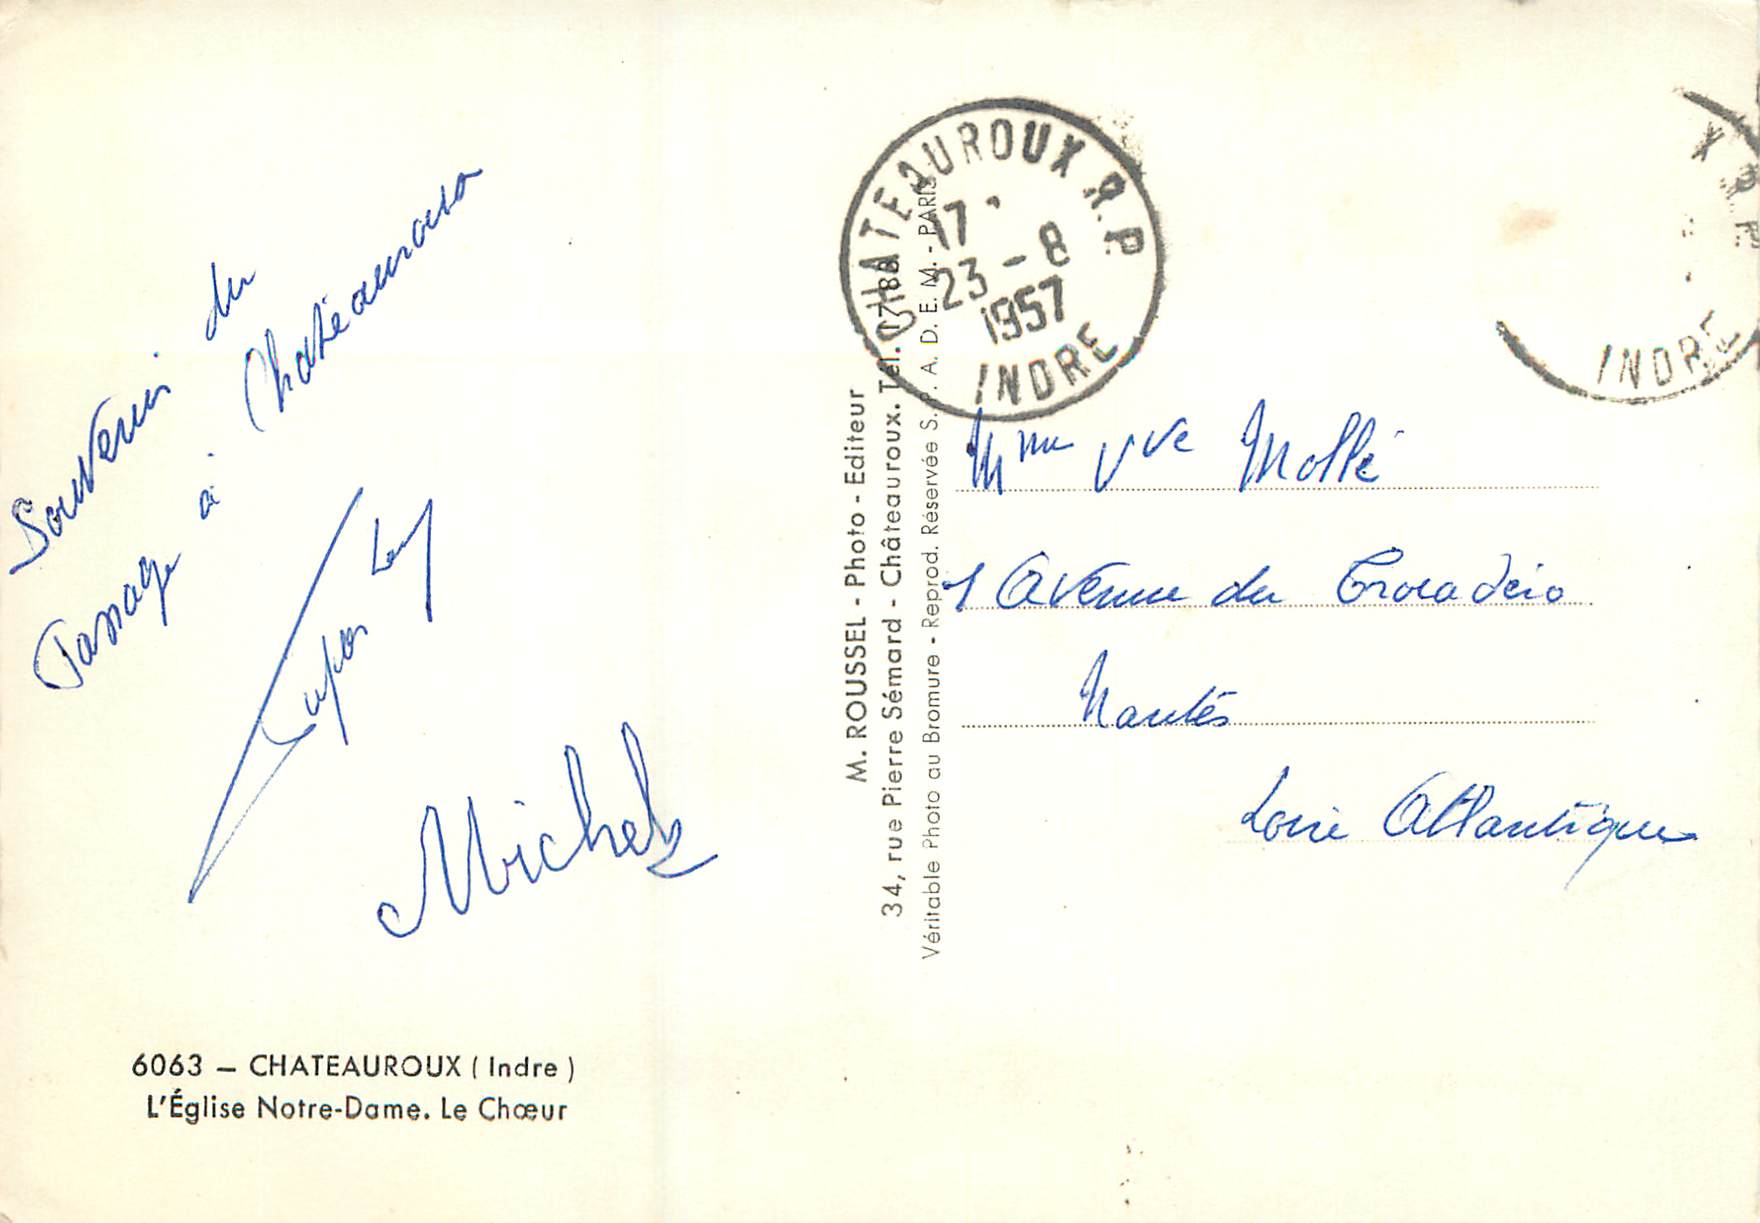 Souvenir du
Passage à Chateauroux
Michel
6063 – CHATEAUROUX ( Indre )
L'Église Notre-Dame. Le Chœur
M. ROUSSEL - Photo - Editeur
34, rue Pierre Sémard - Châteauroux. Tél. 17-88
Véritable Photo au Bromure - Reprod. Réservée S. P. A. D. E. M. - PARIS
CHATEAUROUX R.P.
17
23 - 8
1957
INDRE
X R.P.
INDRE
Mme Vve Mollé
1 Avenue du Trocadéro
Nantes
Loire Atlantique